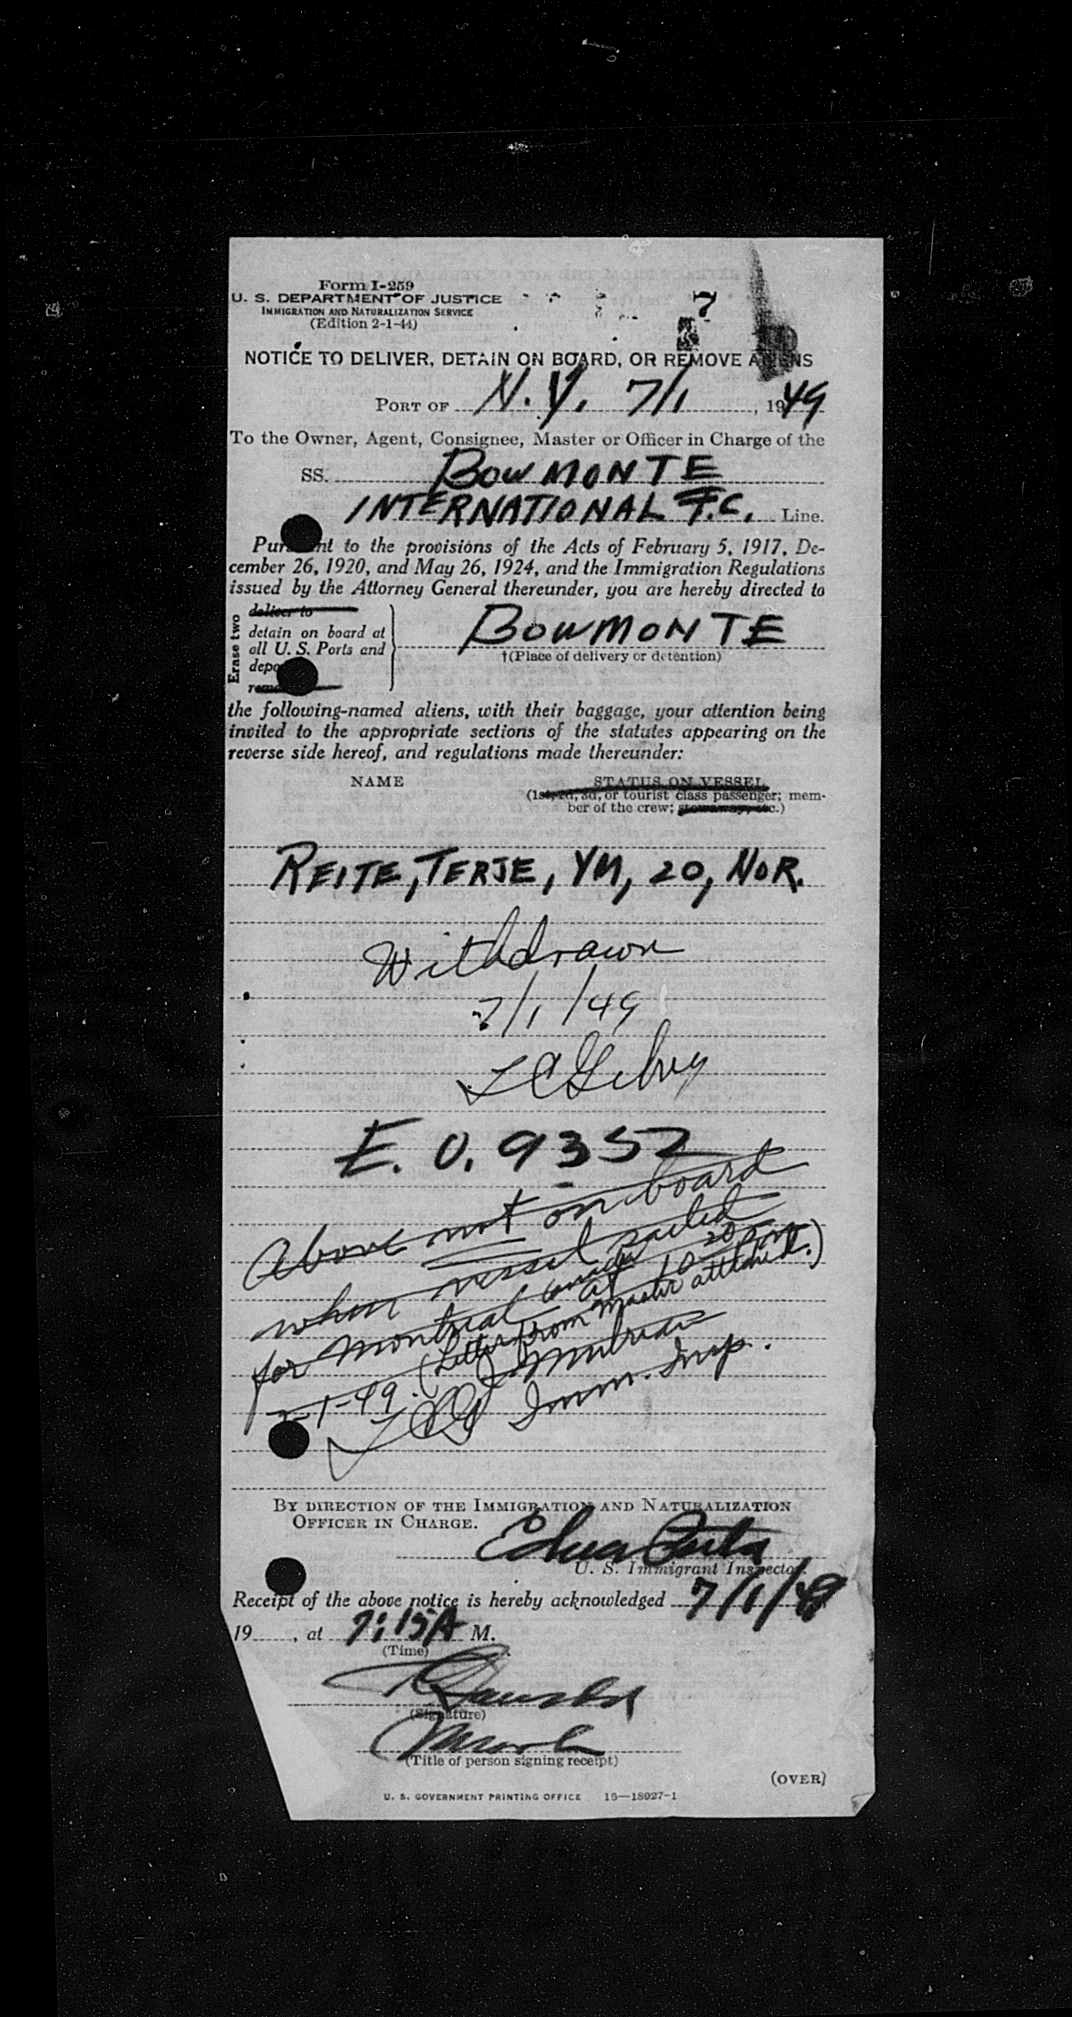 Form I-259
U. S. DEPARTMENT OF JUSTICE
IMMIGRATION AND NATURALIZATION SERVICE
(Edition 2-1-44)
7
NOTICE TO DELIVER, DETAIN ON BOARD, OR REMOVE ALIENS
PORT OF N.Y. 7/1, 1949
To the Owner, Agent, Consignee, Master or Officer in Charge of the
SS. BOWMONTE
INTERNATIONAL F.C. Line.
Pursuant to the provisions of the Acts of February 5, 1917, De-
cember 26, 1920, and May 26, 1924, and the Immigration Regulations
issued by the Attorney General thereunder, you are hereby directed to
Erase two
deliver to
detain on board at
all U. S. Ports and
BOWMONTE
†(Place of delivery or detention)
the following-named aliens, with their baggage, your attention being
invited to the appropriate sections of the statutes appearing on the
reverse side hereof, and regulations made thereunder:
NAME
STATUS ON VESSEL
(1st, 2d, 3d, or tourist class passenger; mem-
ber of the crew; stowaway, etc.)
REITE, TERJE, YM, 20, NOR.
Withdrawn
7/1/49
E. O. 9352
Above not on board
when vessel sailed
for Montreal Canada at 10 20 pm
7-1-49. (Letter from Master attached.)
Imm. Insp.
BY DIRECTION OF THE IMMIGRATION AND NATURALIZATION
OFFICER IN CHARGE.
U. S. Immigrant Inspector.
Receipt of the above notice is hereby acknowledged 7/1/49
19, at 7:15 A M.
(Time)
(Signature)
(Title of person signing receipt)
(OVER)
U. S. GOVERNMENT PRINTING OFFICE 16—18027-1